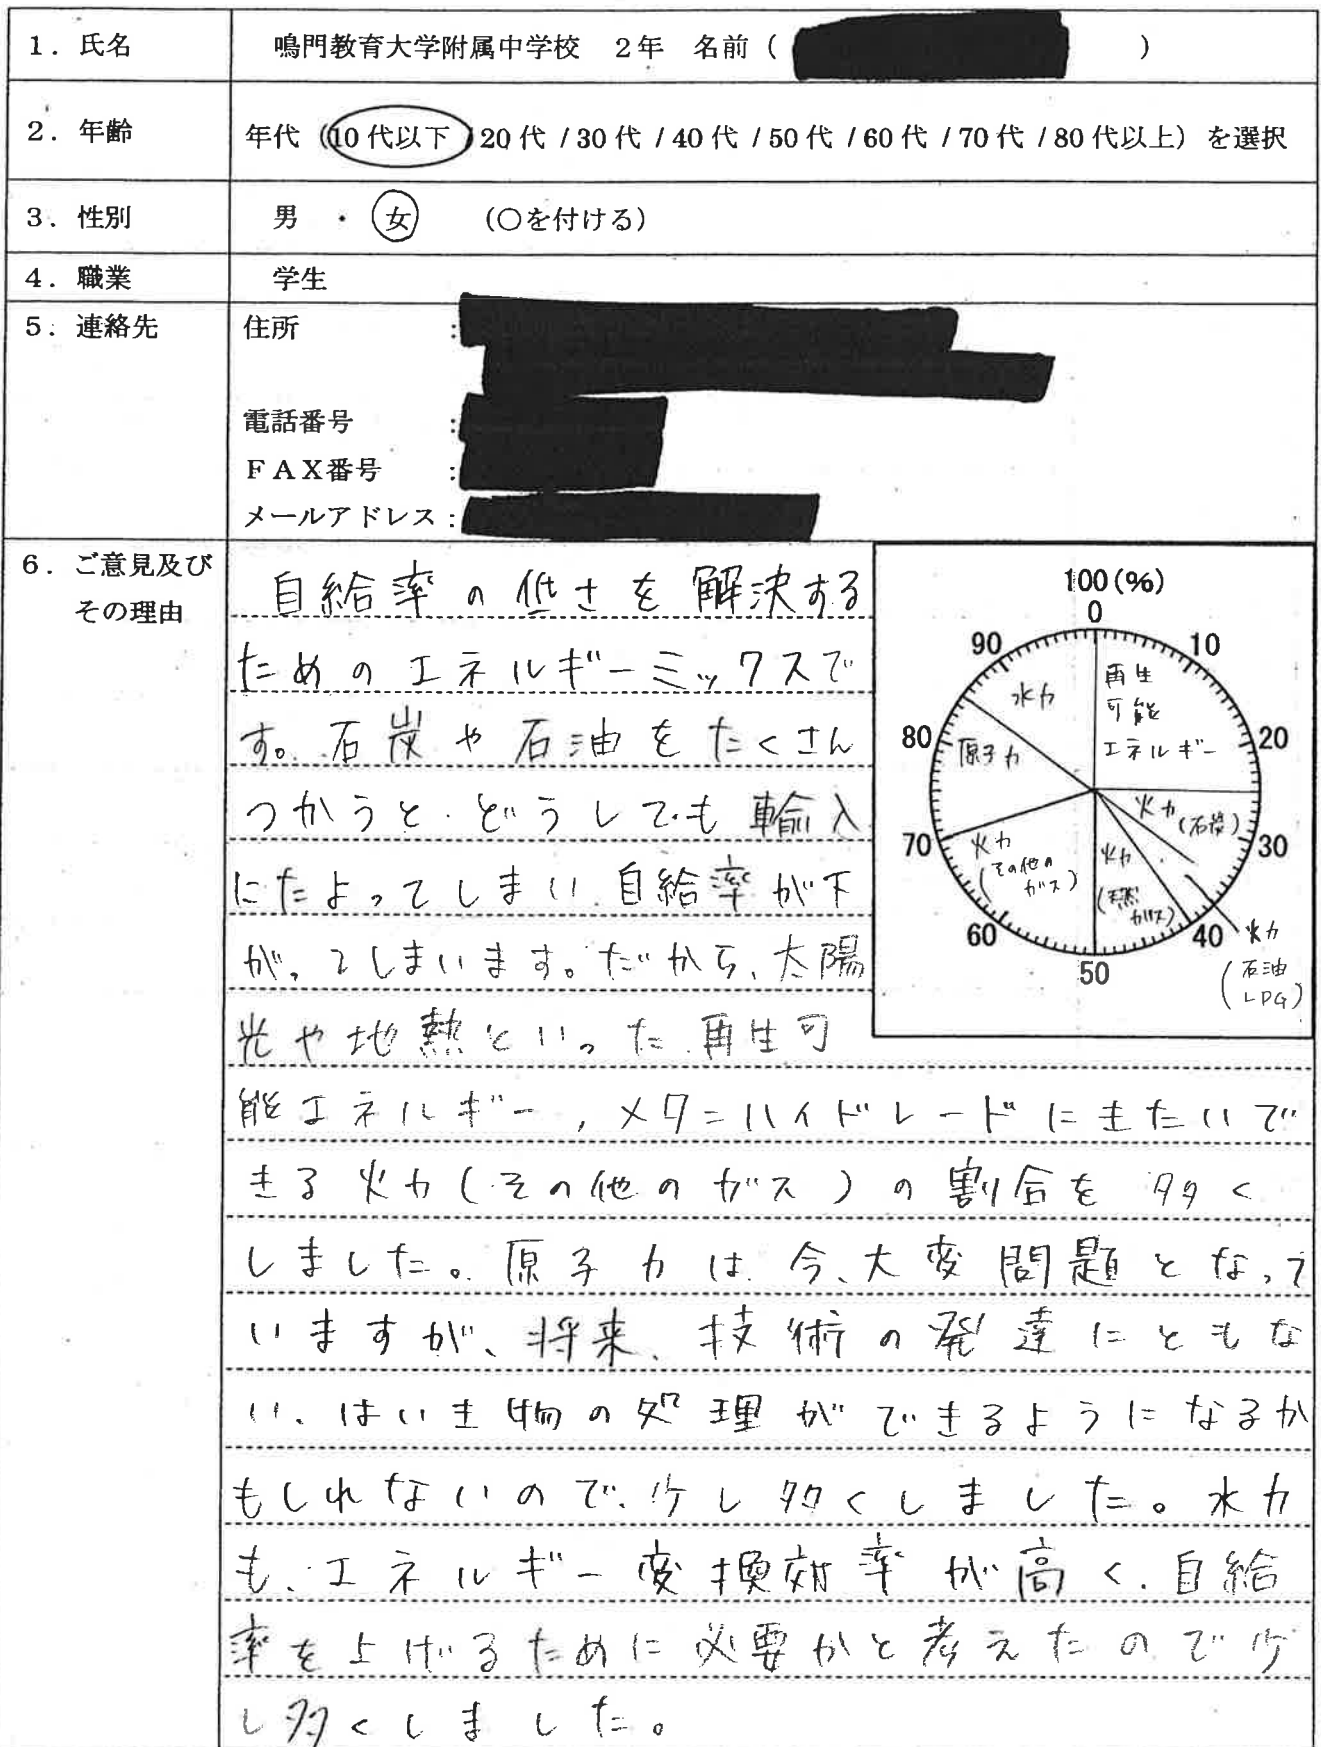 1. 氏名
鳴門教育大学附属中学校 2年 名前 ( )
2. 年齢
年代 (10代以下/20代/30代/40代/50代/60代/70代/80代以上) を選択
3. 性別
男 ・ 女 (○を付ける)
4. 職業
学生
5. 連絡先
住所 :
電話番号 :
FAX番号 :
メールアドレス :
6. ご意見及び
その理由
自給率の低さを解決する
ためのエネルギーミックスで
す。石炭や石油をたくさん
つかうと、どうしても輸入
にたよってしまい、自給率が下
がってしまいます。だから、太陽
光や地熱といった再生可
能エネルギー,メタンハイドレードにきたいで
きる火力(その他のガス)の割合を多く
しました。原子力は、今、大変問題となって
いますが、将来、技術の発達にともな
い、はいき物の処理ができるようになるか
もしれないので、少し多くしました。水力
も、エネルギー変換効率が高く、自給
率を上げるために必要かと考えたので少
し多くしました。
100(%)
0
10
20
30
40
50
60
70
80
90
再生
可能
エネルギー
火力
(石炭)
火力
(石油
LPG)
火力
(天然
ガス)
火力
(その他の
ガス)
原子力
水力